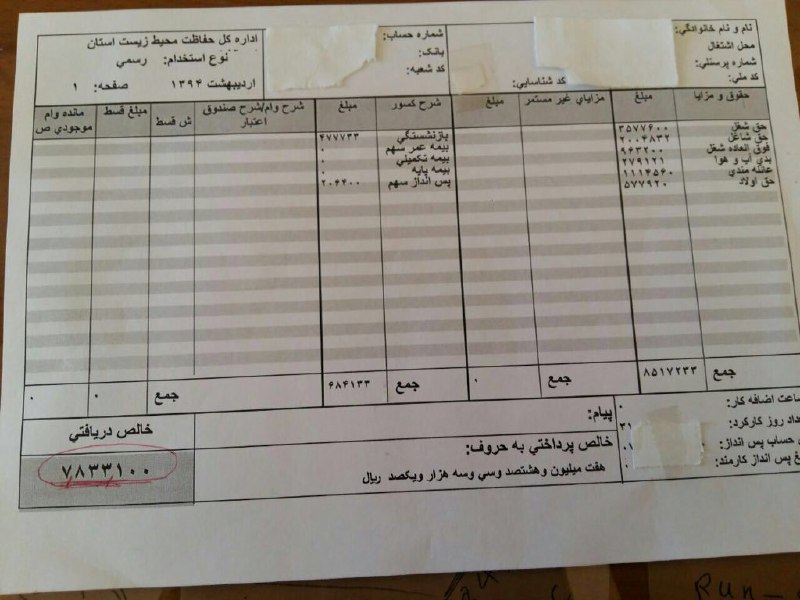 نام و نام خانوادگي:
محل اشتغال
شماره پرسنلي:
کد ملي:
کد شناسايي:
شماره حساب:
بانک:
کد شعبه:
اداره کل حفاظت محيط زيست استان
نوع استخدام: رسمي
ارديبهشت ۱۳۹۴ صفحه: ۱
حقوق و مزايا مبلغ مزاياي غير مستمر مبلغ شرح کسور مبلغ شرح وام/شرح صندوق اعتبار ش قسط مبلغ قسط مانده وام موجودي ص
حق شغل ۳۵۷۷۶۰۰ بازنشستگي ۴۷۷۷۳۳
حق شاغل ۲۰۰۴۸۳۲ بيمه عمر سهم ۰
فوق العاده شغل ۹۶۳۲۰۰ بيمه تکميلي ۰
بدي آب و هوا ۲۷۹۱۲۱ بيمه پايه ۰
عائله مندي ۱۱۱۴۵۶۰ پس انداز سهم ۲۰۶۴۰۰
حق اولاد ۵۷۷۹۲۰
جمع ۸۵۱۷۲۳۳ جمع ۰ جمع ۶۸۴۱۳۳ جمع ۰ ۰
ساعت اضافه کار: ۰
داد روز کارکرد: ۳۱
حساب پس انداز: ۰۱
غ پس انداز کارمند: ۰
پيام:
خالص پرداختي به حروف:
هفت ميليون وهشتصد وسي وسه هزار ويکصد ريال
خالص دريافتي
۷۸۳۳۱۰۰
Run_